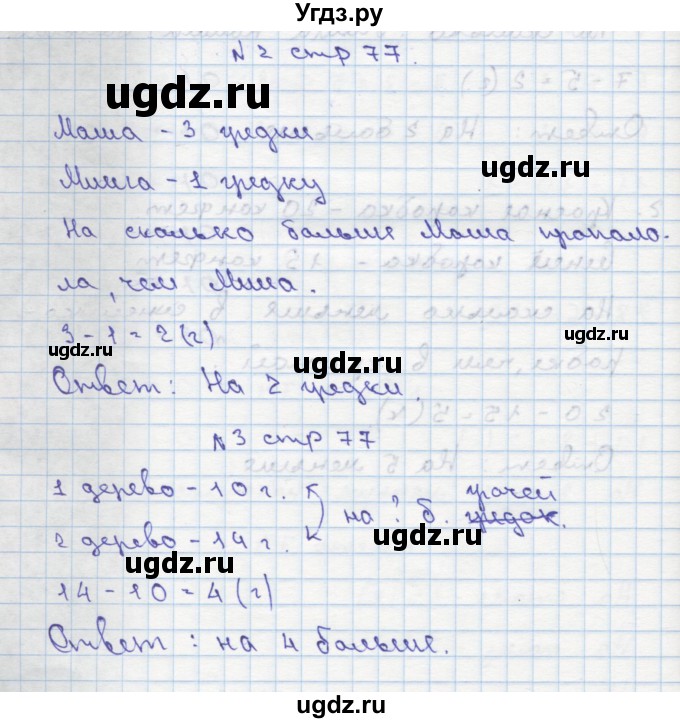 Угдз.ру
N 2 стр 77.
ugdz.ru
Маша - 3 грядки
ugdz.ru
Миша - 1 грядку
ugdz.ru
На сколько больше Маша прополо-
ла, чем Миша.
ugdz.ru
3 - 1 = 2 (г)
ugdz.ru
ugdz.ru
Ответ: На 2 грядки.
N 3 стр 77
ugdz.ru
1 дерево - 10 г.
на ? б. грачей
грядок.
2 дерево - 14 г.
ugdz.ru
ugdz.ru
14 - 10 = 4 (г)
ugdz.ru
Ответ: на 4 больше.
ugdz.ru
ugdz.ru